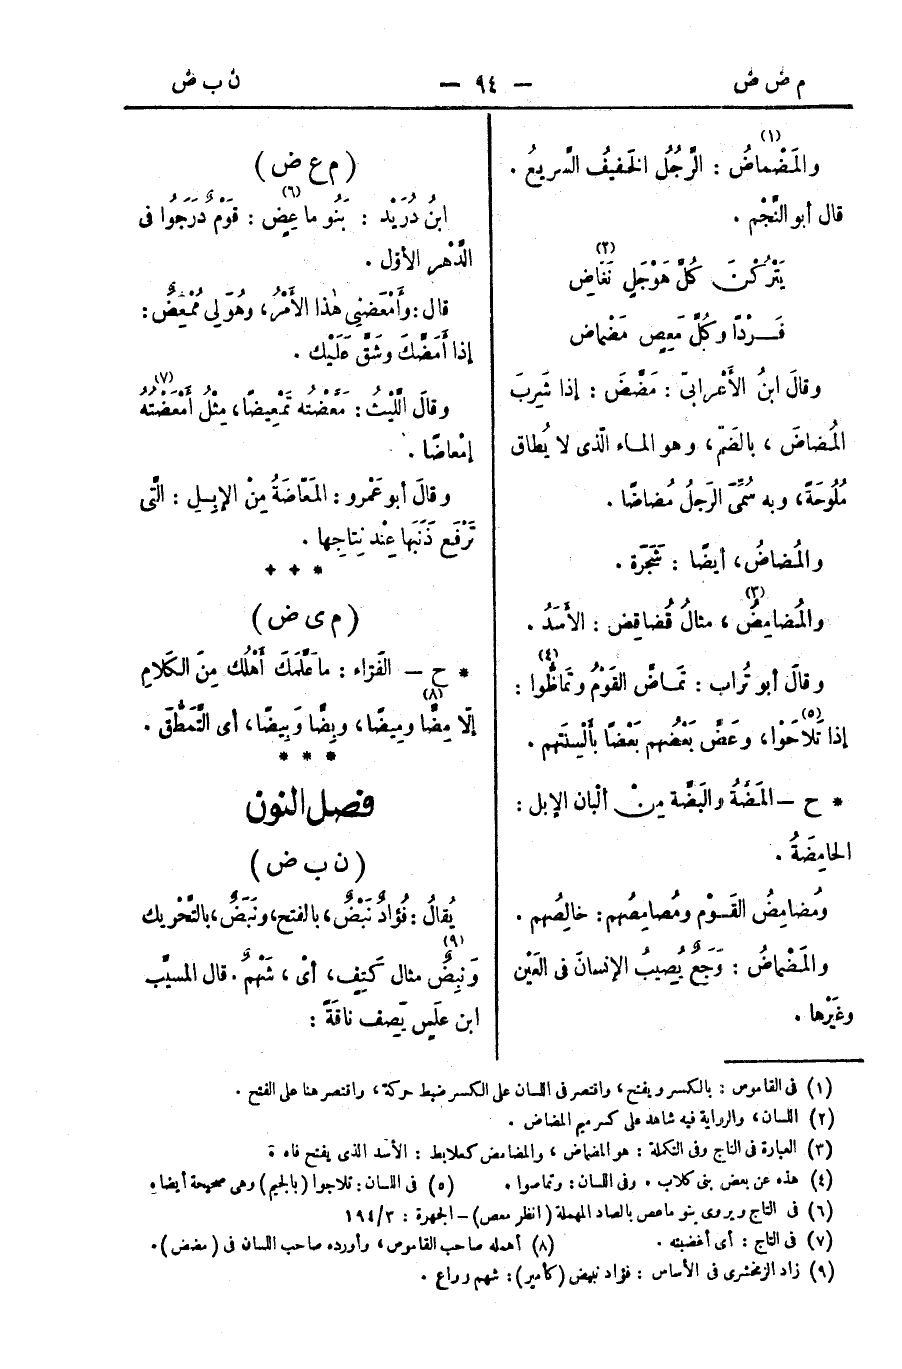 م ض ض — ٩٤ — ن ب ض
والمَضْماضُ (١) : الرَّجُلُ الخَفيفُ السَّريعُ .
قال أبو النَّجْم .
يَتْرُكْنَ كُلَّ هَوْجَلٍ نَغّاضِ (٢)
فَـرْدًا وكُلَّ مَعِصٍ مَضْماضِ
وقالَ ابنُ الأَعْرابىّ : مَضَّضَ : إذا شَرِبَ
المُضاضَ ، بالضّم ، وهو الماء الّذى لا يُطاق
مُلُوحَةً ، وبه سُمِّىَ الرَجلُ مُضاضًا .
والمُضاضُ ، أيضًا : شَجَرَة .
والمُضامِضُ (٣) ، مثالُ قُضاقِض : الأَسَدُ .
وقالَ أبو تُراب : تَماضَّ القَوْمُ وتَماظُّوا (٤) :
إذا تَلاحَوْا (٥) ، وعَضَّ بَعْضُهم بَعْضًا بأَلْسِنَتِهم .
* ح – المَضَّةُ والبَضَّة مِنْ ألْبان الإبل :
الحامِضَةُ .
ومُضامِضُ القَـوْم ومُصامِصُهم : خالِصُهم .
والمَضْماضُ : وَجَعٌ يُصِيبُ الإنسانَ فى العَيْن
وغَيْرها .
(م ع ض)
ابنُ دُرَيْد : بَنُو ماعِضٍ (٦) : قَوْمٌ دَرَجُوا فى
الدَّهْرِ الأوّل .
قال : وأَمْعَضَنِى هٰذا الأَمْرُ ، وهُوَ لِى مُمْعِضٌ :
إذا أَمَضَّكَ وشَقَّ عَلَيْك .
وقالَ اللَّيْثُ : مَعَّضْتُه تَمْعِيضًا ، مِثْلُ أَمْعَضْتُه (٧)
إمْعاضًا .
وقالَ أبو عَمْرو : المَعّاضَةُ مِنْ الإبِـلِ : الَّتى
تَرْفَع ذَنَبَها عِنْد نِتاجِها .
* * *
(م ى ض)
* ح – الفَرّاء : ما عَلَّمَكَ أَهْلُك مِنَ الكَلامِ
إلّا مِضًّا ومِيضًا (٨) ، وبِضًّا وَبِيضًا ، أى التَّمَطُّقَ .
* * *
فصل النون
(ن ب ض)
يُقالُ : فُؤادٌ نَبْضٌ ، بالفتح ، ونَبَضٌ ، بالتَّحْرِيك
وَنَبِضٌ (٩) مثال كَتِفٍ ، أىْ ، شَهْمٌ . قال المسيَّب
ابن عَلَسٍ يَصِف ناقَةً :
(١) فى القاموس : بالكسر ويفتح ، واقتصر فى اللسان على الكسر ضبط حركة ، واقتصر هنا على الفتح .
(٢) اللسان ، والرواية فيه شاهد على كسر ميم المضاض .
(٣) العبارة فى التاج وفى التكملة : هو المضماض ، والمضامض كعلابط : الأسد الذى يفتح فاه ة
(٤) هذه عن بعض بنى كلاب . وفى اللسان : وتماصوا . (٥) فى اللسان : تلاجوا (بالجيم) وهى صحيحة أيضا .
(٦) فى التاج ويروى بنو ماعص بالصاد المهملة (انظر معص) – الجمهرة : ٣/ ١٩٤
(٧) فى التاج : أى أغضبته . (٨) أهمله صاحب القاموس ، وأورده صاحب اللسان فى (مضض) .
(٩) زاد الزمخشرى فى الأساس : فؤاد نبيض (كأمير) : شهم وراع .